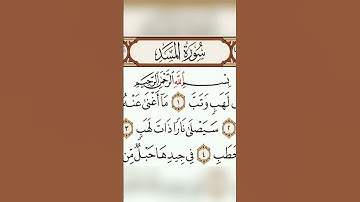 سُورَةُ المَسَدِ
بِسْمِ اللَّهِ الرَّحْمَٰنِ الرَّحِيمِ
لَهَبٍ وَتَبَّ ١ مَا أَغْنَىٰ عَنْهُ
٢ سَيَصْلَىٰ نَارًا ذَاتَ لَهَبٍ ٣
حَطَبِ ٤ فِي جِيدِهَا حَبْلٌ مِّن